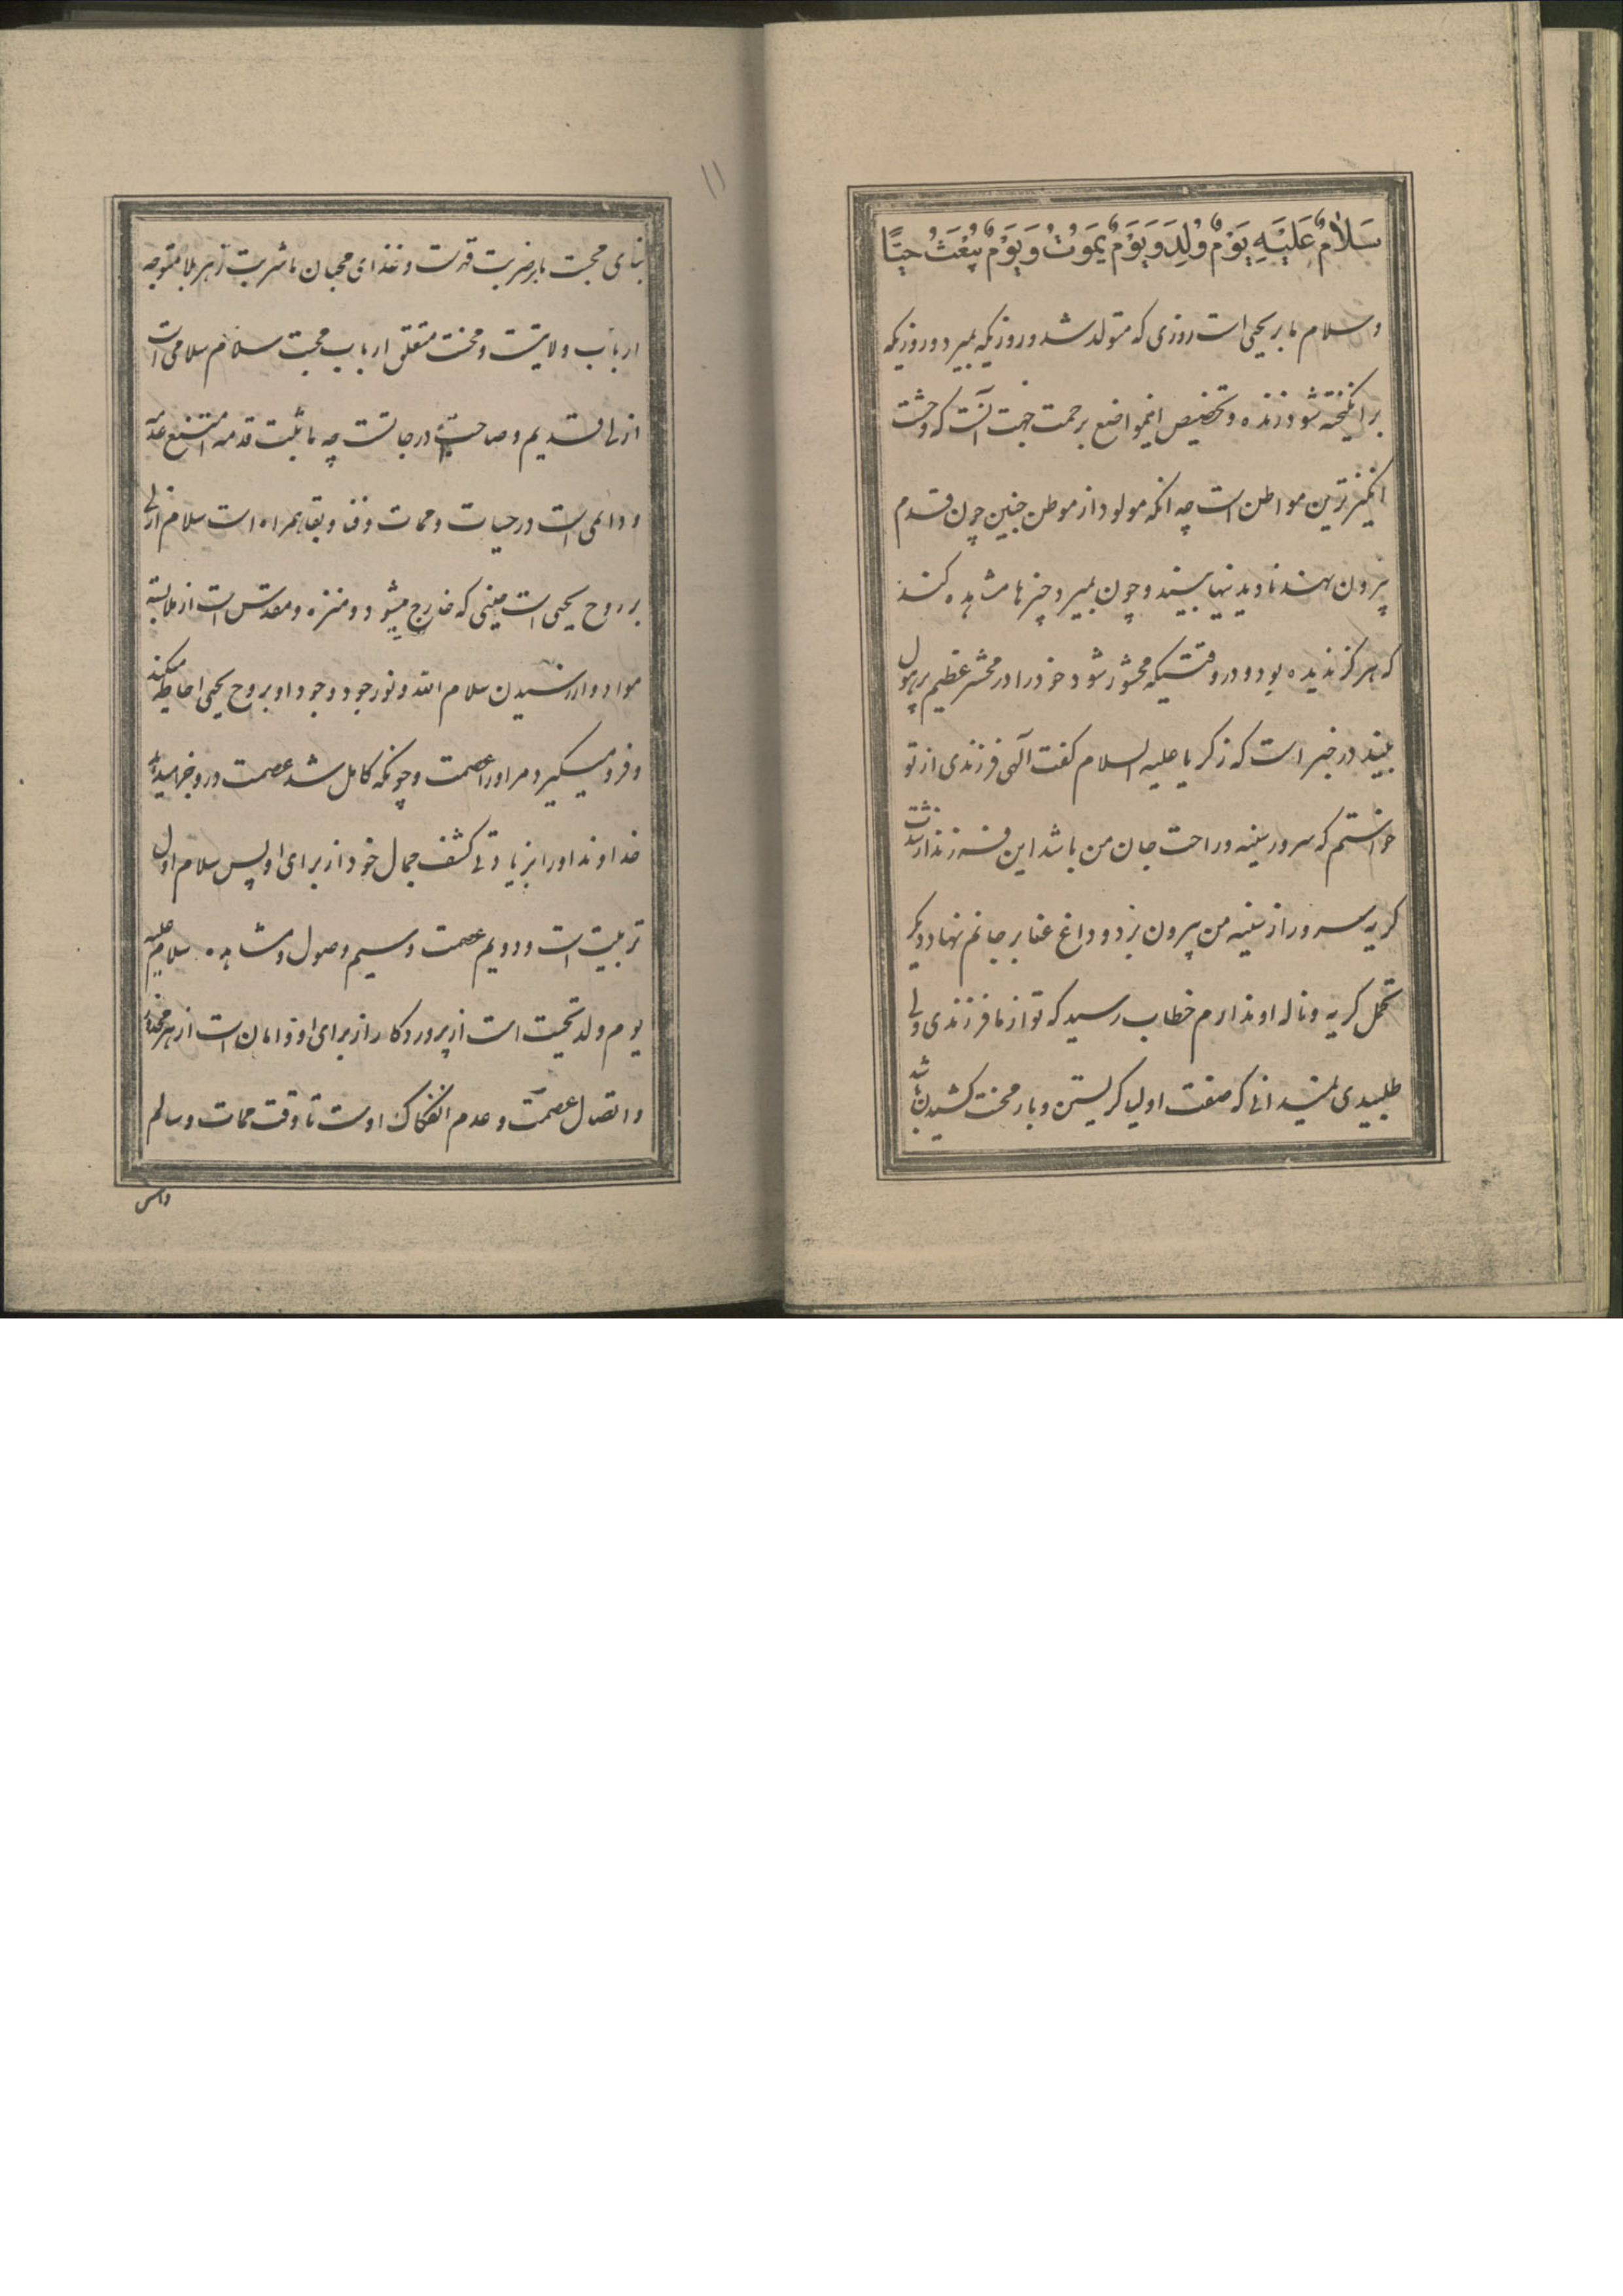 سَلَامٌ عَلَيْهِ يَوْمَ وُلِدَ وَيَوْمَ يَمُوتُ وَيَوْمَ يُبْعَثُ حَيًّا
وسلام ما بر یحیی است روزی که متولد شد و روزیکه بمیرد و روزیکه
برانگیخته شود زنده و تخصیص اینمواضع برحمت جهت آنست که وحشت
انگیزترین مواطن است چه انکه مولود از موطن جنین چون قدم
بیرون نهند نادیدنیها بیند و چون بمیرد چیزها مشاهده کند
که هرگز ندیده بود و در وقتیکه محشور شود خود را در محشر عظیم پرهول
بیند در خبر است که زکریا علیه السلام کفت آلهی فرزندی از تو
خواستم که سرور سینه و راحت جان من باشد این فرزند از شدت
کریه سرور از سینه من بیرون برد و داغ عنا بر جانم نهاد دیکر
تحمل کریه و ناله او ندارم خطاب رسید که تو از ما فرزندی ولی
طلبیدی نمیدانی که صفت اولیا کریستن و بار محنت کشیدن باشد
۱۱
بنای محبت بار ضربت قهرست و غذای محبان ما شربت زهر بلا متوجه
ارباب ولایتست و محنت متعلق ارباب محبت سلام سلامی است
ازلی قدیم و صاحب درجاتست چه ما ثبت قدمه امتنع عدمه
و دائمی است در حیات و ممات و فنا و بقا همراه است سلام ازلی
بر روح یحیی است حینی که خارج میشود و منزه و مقدس است از ملابسه
مواد و از رسیدن سلام الله و نور جود و وجود او بر روح یحیی احاطه میکند
و فرو میگیرد مر او را عصمت و چونکه کامل شد عصمت در او
خداوند او را بزیادتی کشف جمال خود از برای او پس سلام اول
تربیت است و دویم عصمت و سیم وصول و مشاهده سلام علیه
یوم ولد تحیت است از پروردگار از برای او و امان است از هر
و اتصال عصمت و عدم انفکاک اوست تا وقت ممات و سالم